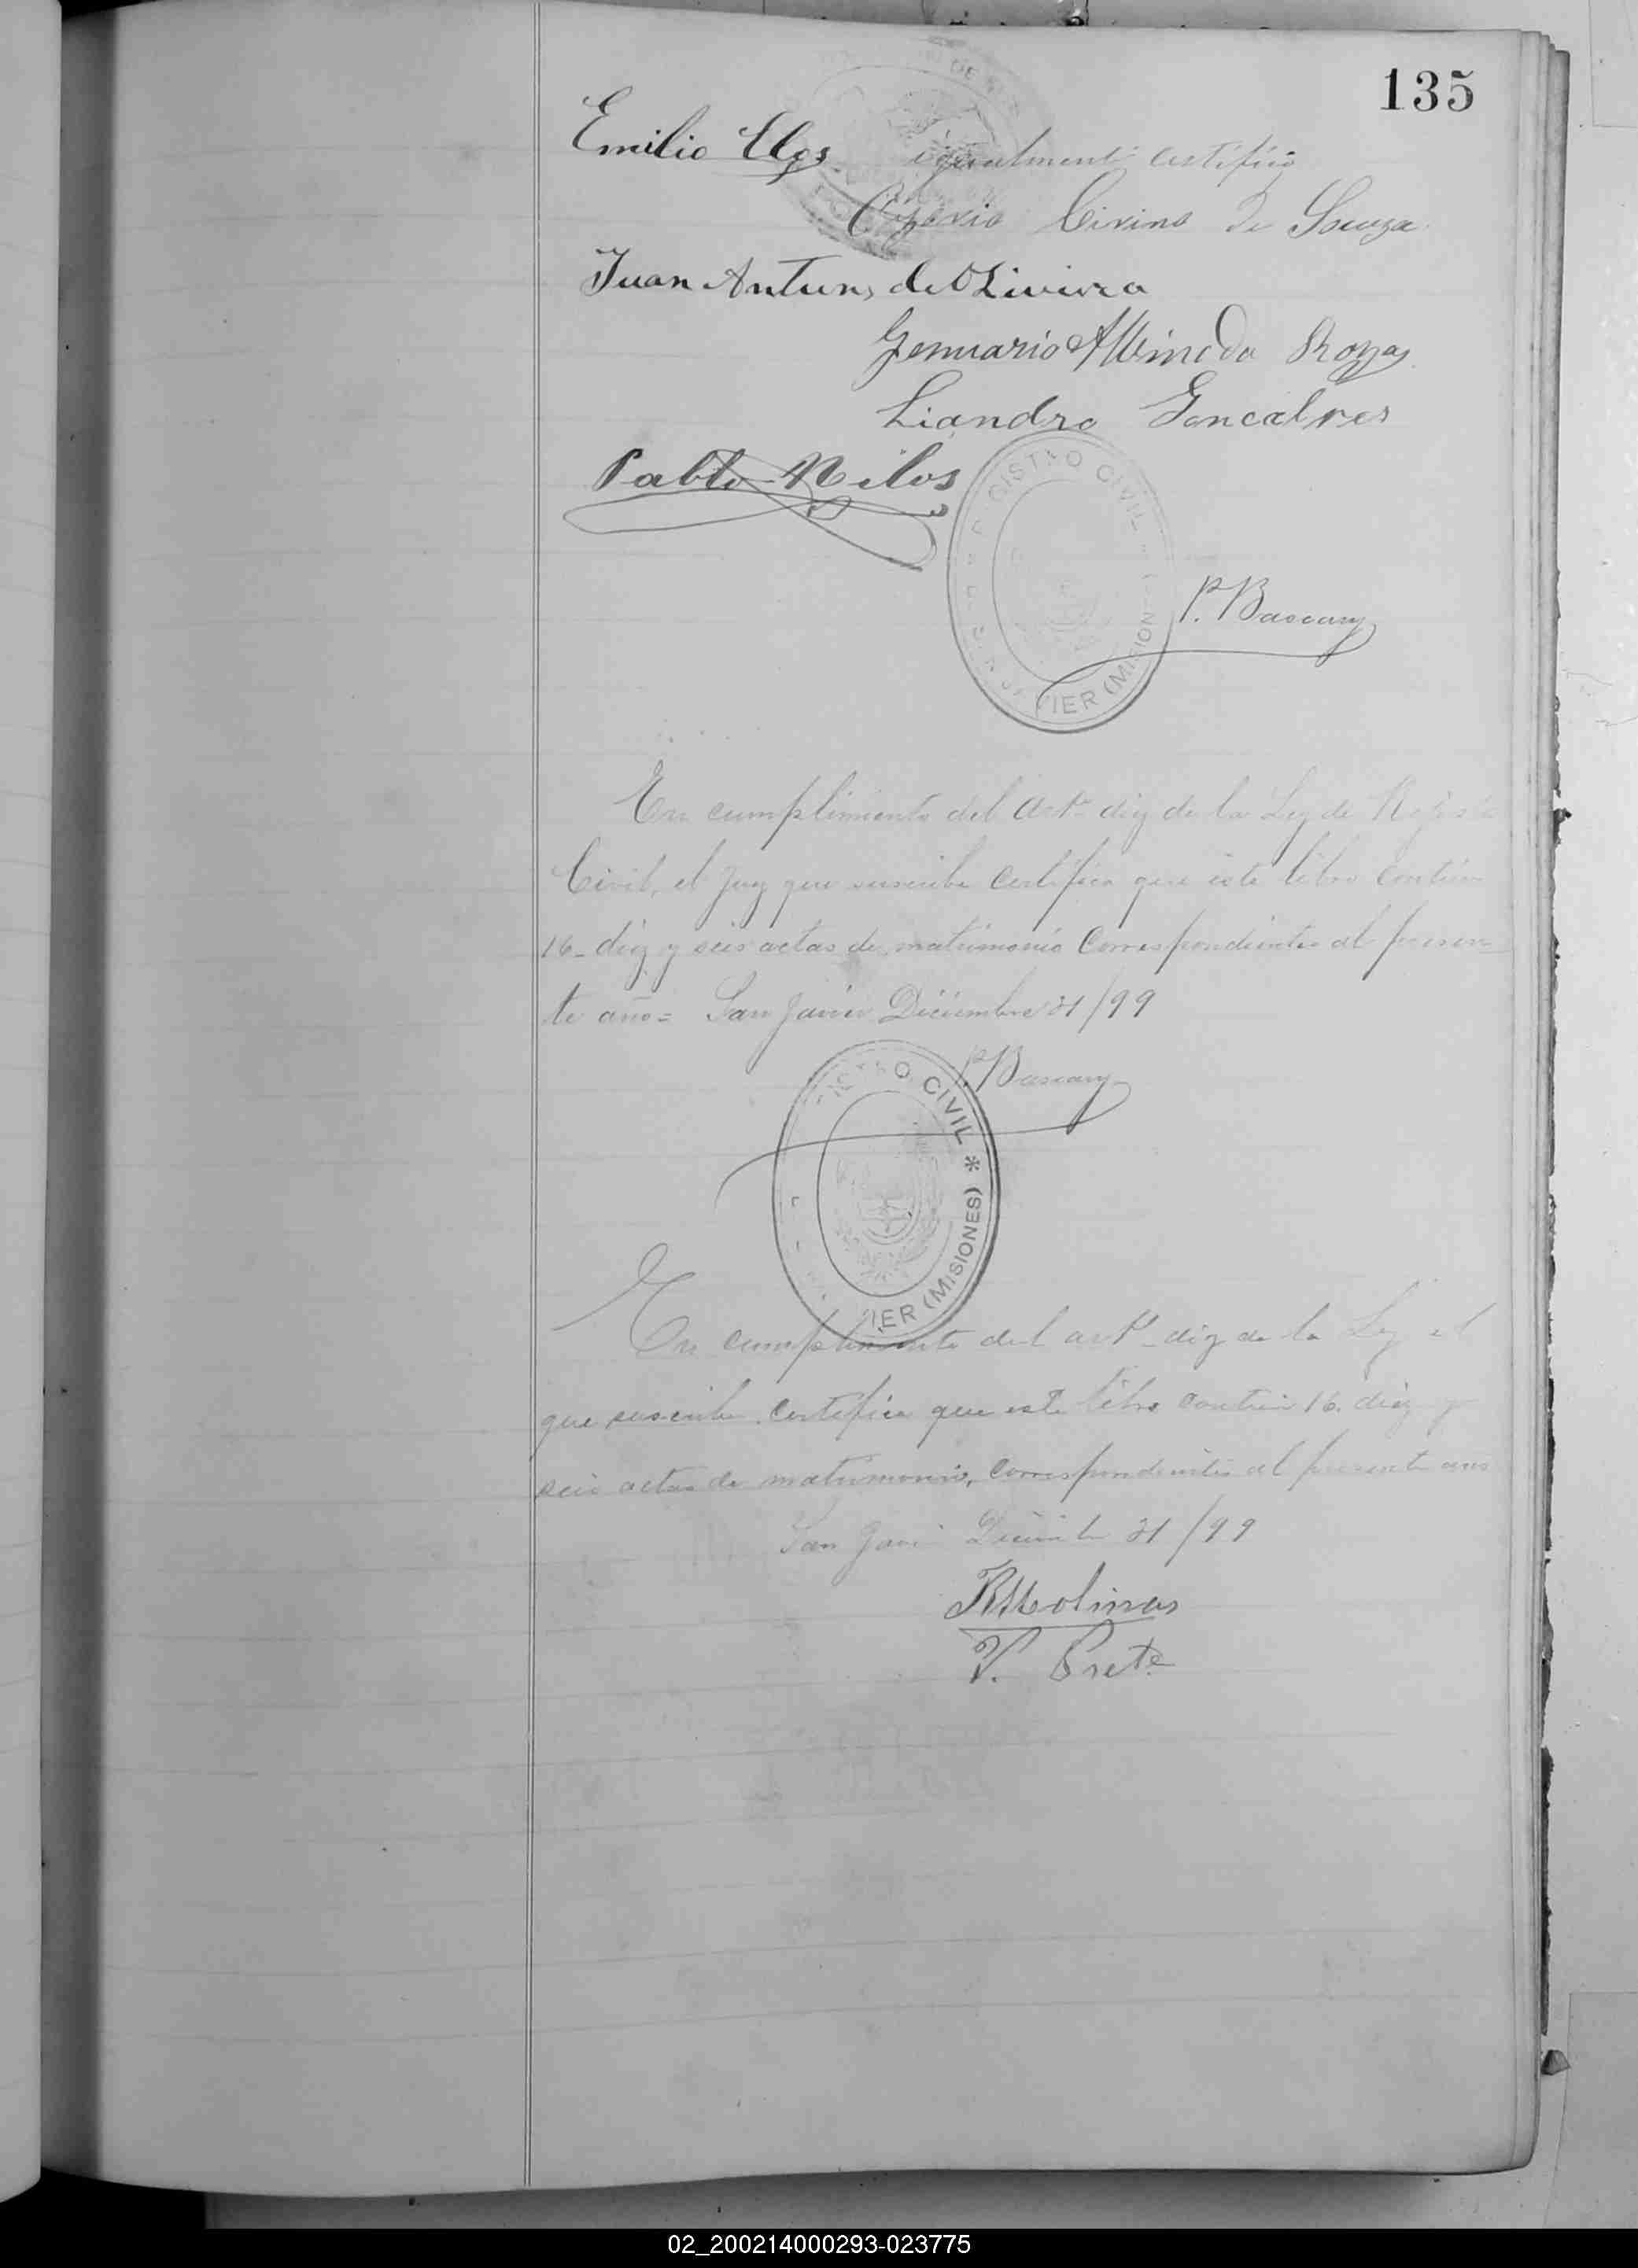 135
Emilio igualmente certifico
Civino de Souza
Juan Antuns de OLiviera
Genuario Albino da
Liandro Goncalves
Pablo Nilos
REGISTRO CIVIL
VIER (MISIONES)
P. Bascary
En cumplimiento del artº diez de la Ley de Registro
Civil, el Juez que suscribe certifica que este libro contiene
16- diez y seis actas de matrimonio correspondientes al presen-
te año= San Javier Diciembre 31/99
P. Bascary
GISTRO CIVIL *
VIER (MISIONES)
En cumplimiento del artº diez de la Ley el
que suscribe certifica que este libro contiene 16. diez y
seis actas de matrimonio, correspondientes al presente año
San Javier Diciembre 31/99
RMolinas
V. Prete
02_200214000293-023775